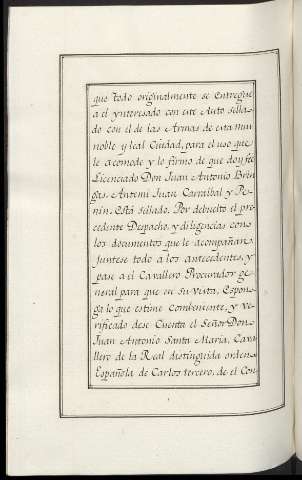 que todo originalmente se Entregue
a el ynteresado con este Auto sella-
do con el de las Armas de esta mui
noble y leal Ciudad, para el uso que
le acomode y lo firmo de que doy fee
Licenciado Don Juan Antonio Brin-
gas. Antemi Juan Carraibal y Pe-
nin. Está sellado. Por debuelto el pre-
cedente Despacho, y diligencias con
los documentos que le acompañan,
juntese todo a los antecedentes, y
pase a el Cavallero Procurador ge-
neral para que en su vista, Espon-
ga lo que estime Combeniente, y ve-
rificado dese Cuenta el Señor Don
Juan Antonio Santa Maria, Cava-
llero de la Real distinguida orden
Española de Carlos tercero, de el Con-